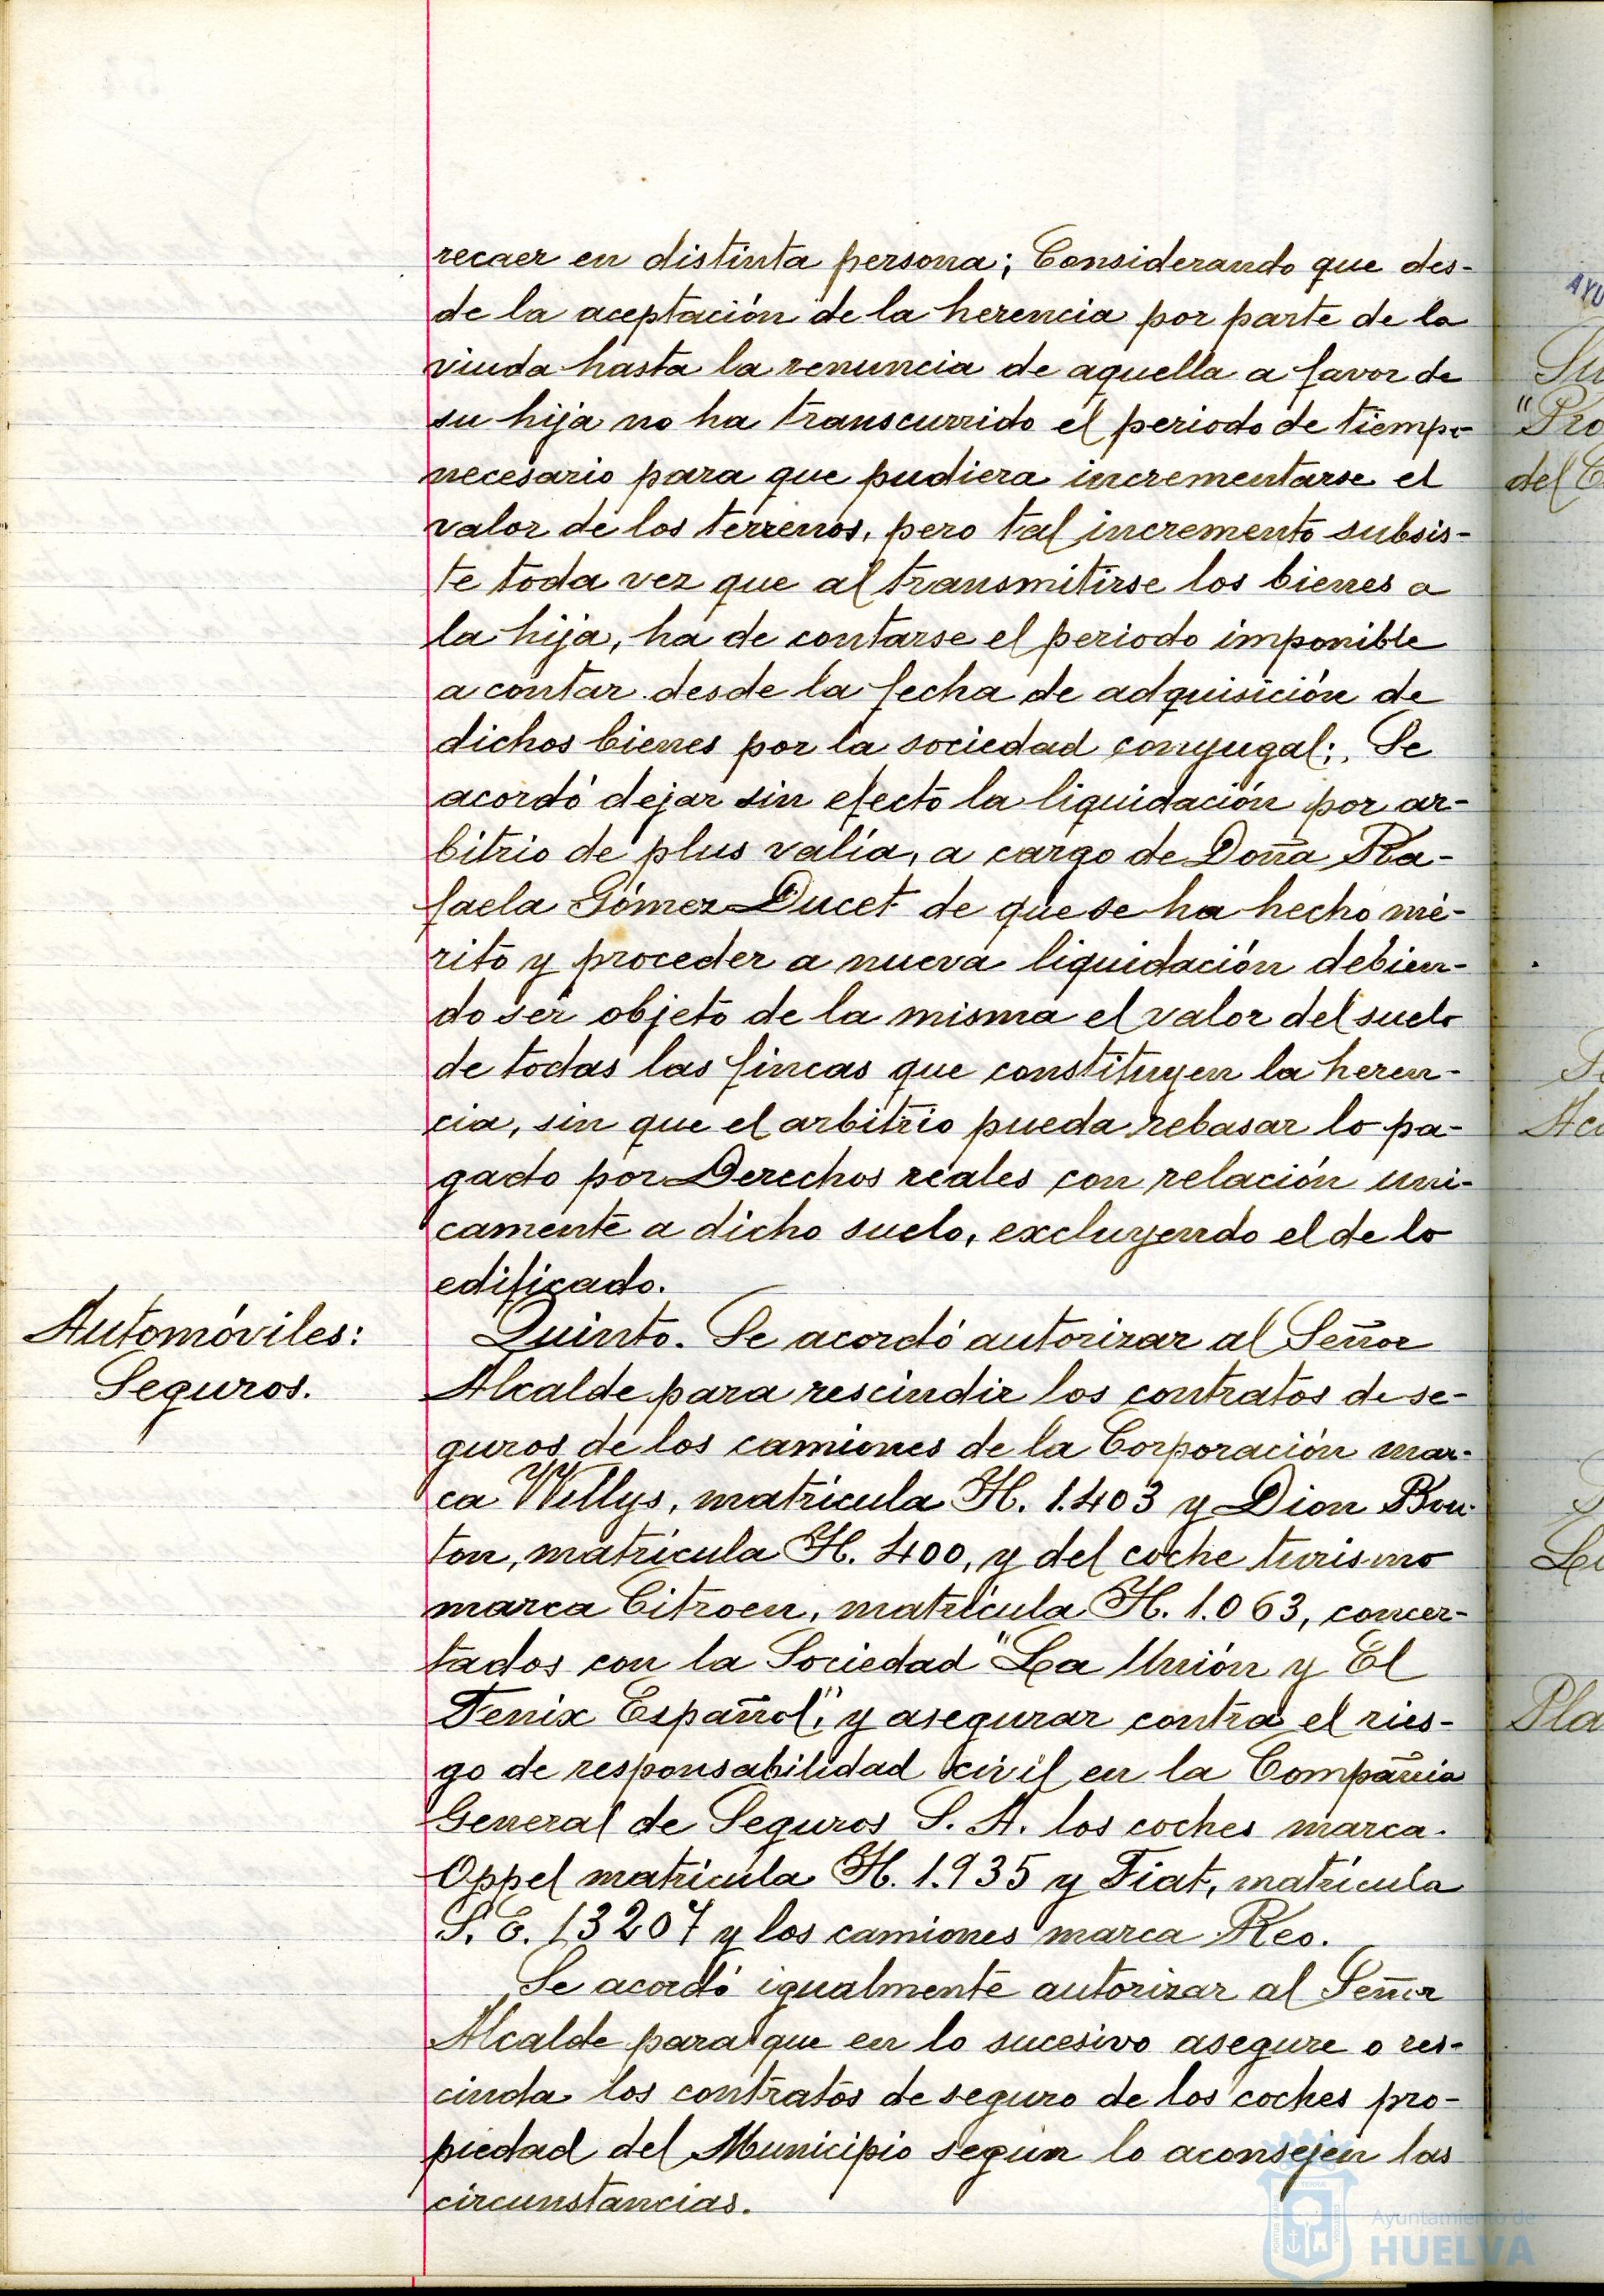 recaer en distinta persona; Considerando que des-
de la aceptación de la herencia por parte de la
viuda hasta la renuncia de aquella a favor de
su hija no ha transcurrido el periodo de tiempo
necesario para que pudiera incrementarse el
valor de los terrenos, pero tal incremento subsis-
te toda vez que al transmitirse los bienes a
la hija, ha de contarse el periodo imponible
a contar desde la fecha de adquisición de
dichos bienes por la sociedad conyugal;, Se
acordó dejar sin efecto la liquidación por ar-
bitrio de plus valía, a cargo de Doña Ra-
faela Gómez Ducet de que se ha hecho mé-
rito y proceder a nueva liquidación debien-
do ser objeto de la misma el valor del suelo
de todas las fincas que constituyen la heren-
cia, sin que el arbitrio pueda rebasar lo pa-
gado por Derechos reales con relación uni-
camente a dicho suelo, excluyendo el de lo
edificado.
Automóviles:
Seguros.
Quinto. Se acordó autorizar al Señor
Alcalde para rescindir los contratos de se-
guros de los camiones de la Corporación mar-
ca Willys, matrícula H. 1.403 y Dion Bou-
ton, matrícula H. 400, y del coche turismo
marca Citroen, matrícula H. 1.063, concer-
tados con la Sociedad "La Unión y El
Fenix Español", y asegurar contra el ries-
go de responsabilidad civil en la Compañia
General de Seguros S. A. los coches marca
Oppel matrícula H. 1.935 y Fiat, matrícula
S. E. 13207 y los camiones marca Reo.
Se acordó igualmente autorizar al Señor
Alcalde para que en lo sucesivo asegure o res-
cinda los contratos de seguro de los coches pro-
piedad del Municipio segun lo aconsejen las
circunstancias.
Ayuntamiento de
HUELVA